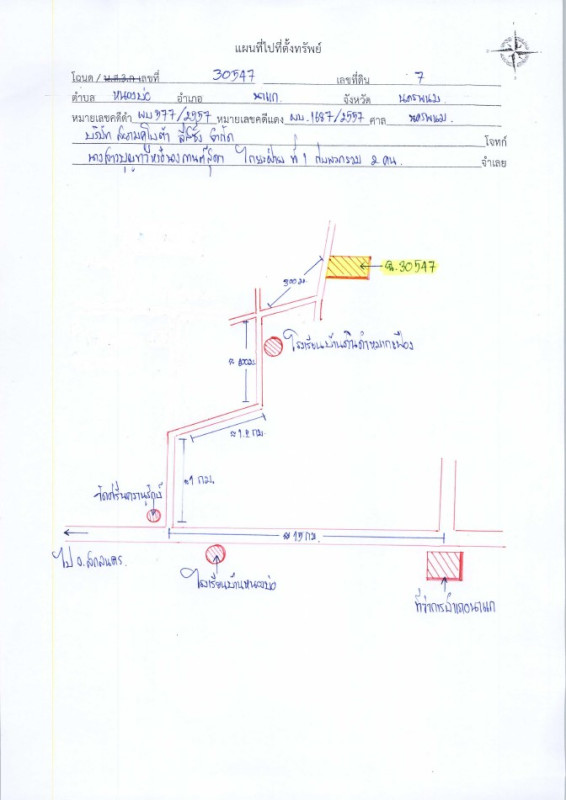 แผนที่ไปที่ตั้งทรัพย์
โฉนด / น.ส.3.ก เลขที่ 30547 เลขที่ดิน 7
ตำบล หนองบ่อ อำเภอ นาแก จังหวัด นครพนม
หมายเลขคดีดำ ผบ 977/2557 หมายเลขคดีแดง ผบ. 1687/2557 ศาล นครพนม
บริษัท สยามคูโบต้า ลีสซิ่ง จำกัด โจทก์
ที่ 1 กับพวกรวม 2 คน จำเลย
ฉ. 30547
300 ม.
โรงเรียนบ้านต้นตำหมากเฟือง
≈ 800 ม.
≈ 1.2 กม.
≈ 1 กม.
≈ 15 กม.
ไป จ.สกลนคร.
โรงเรียนบ้านหนองบ่อ
ที่ว่าการอำเภอนาแก